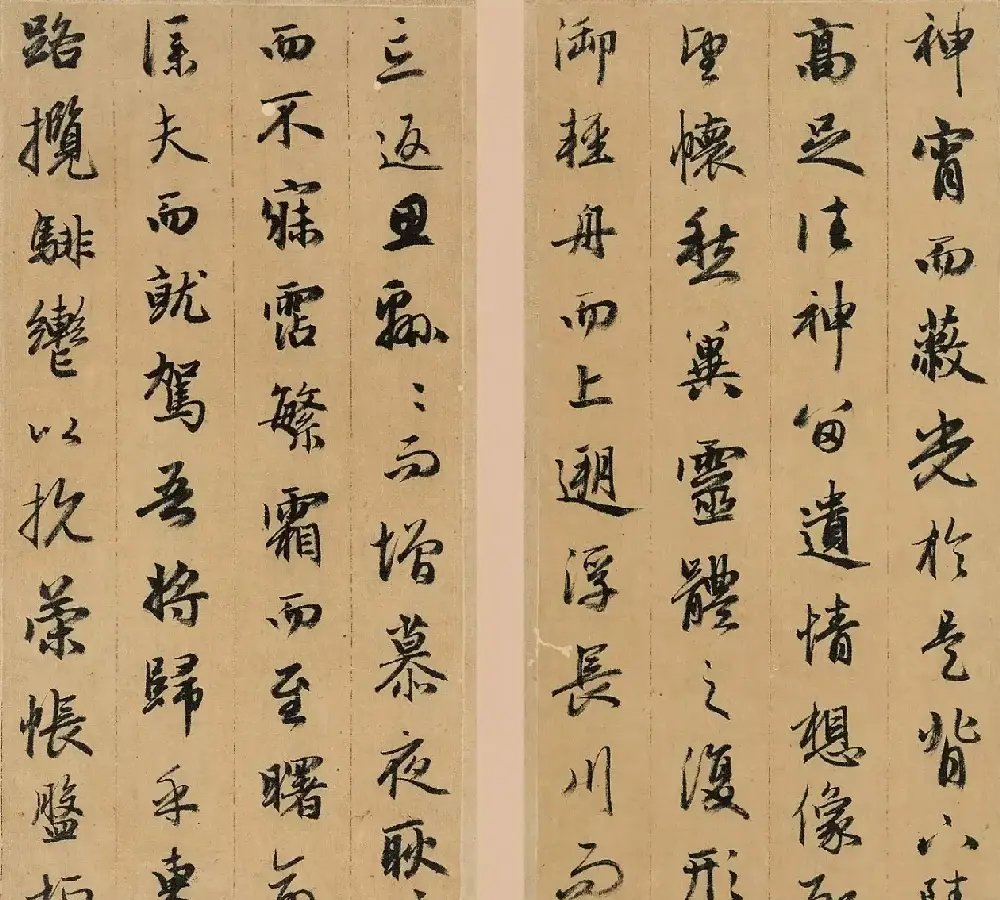 神宵而蔽光於是背下陵
高足往神留遺情想像顧
望懷愁冀靈體之復形
御輕舟而上遡浮長川而
忘返思緜〻而增慕夜耿〻
而不寐霑繁霜而至曙命
僕夫而就駕吾將歸乎東
路攬騑轡以抗策悵盤桓